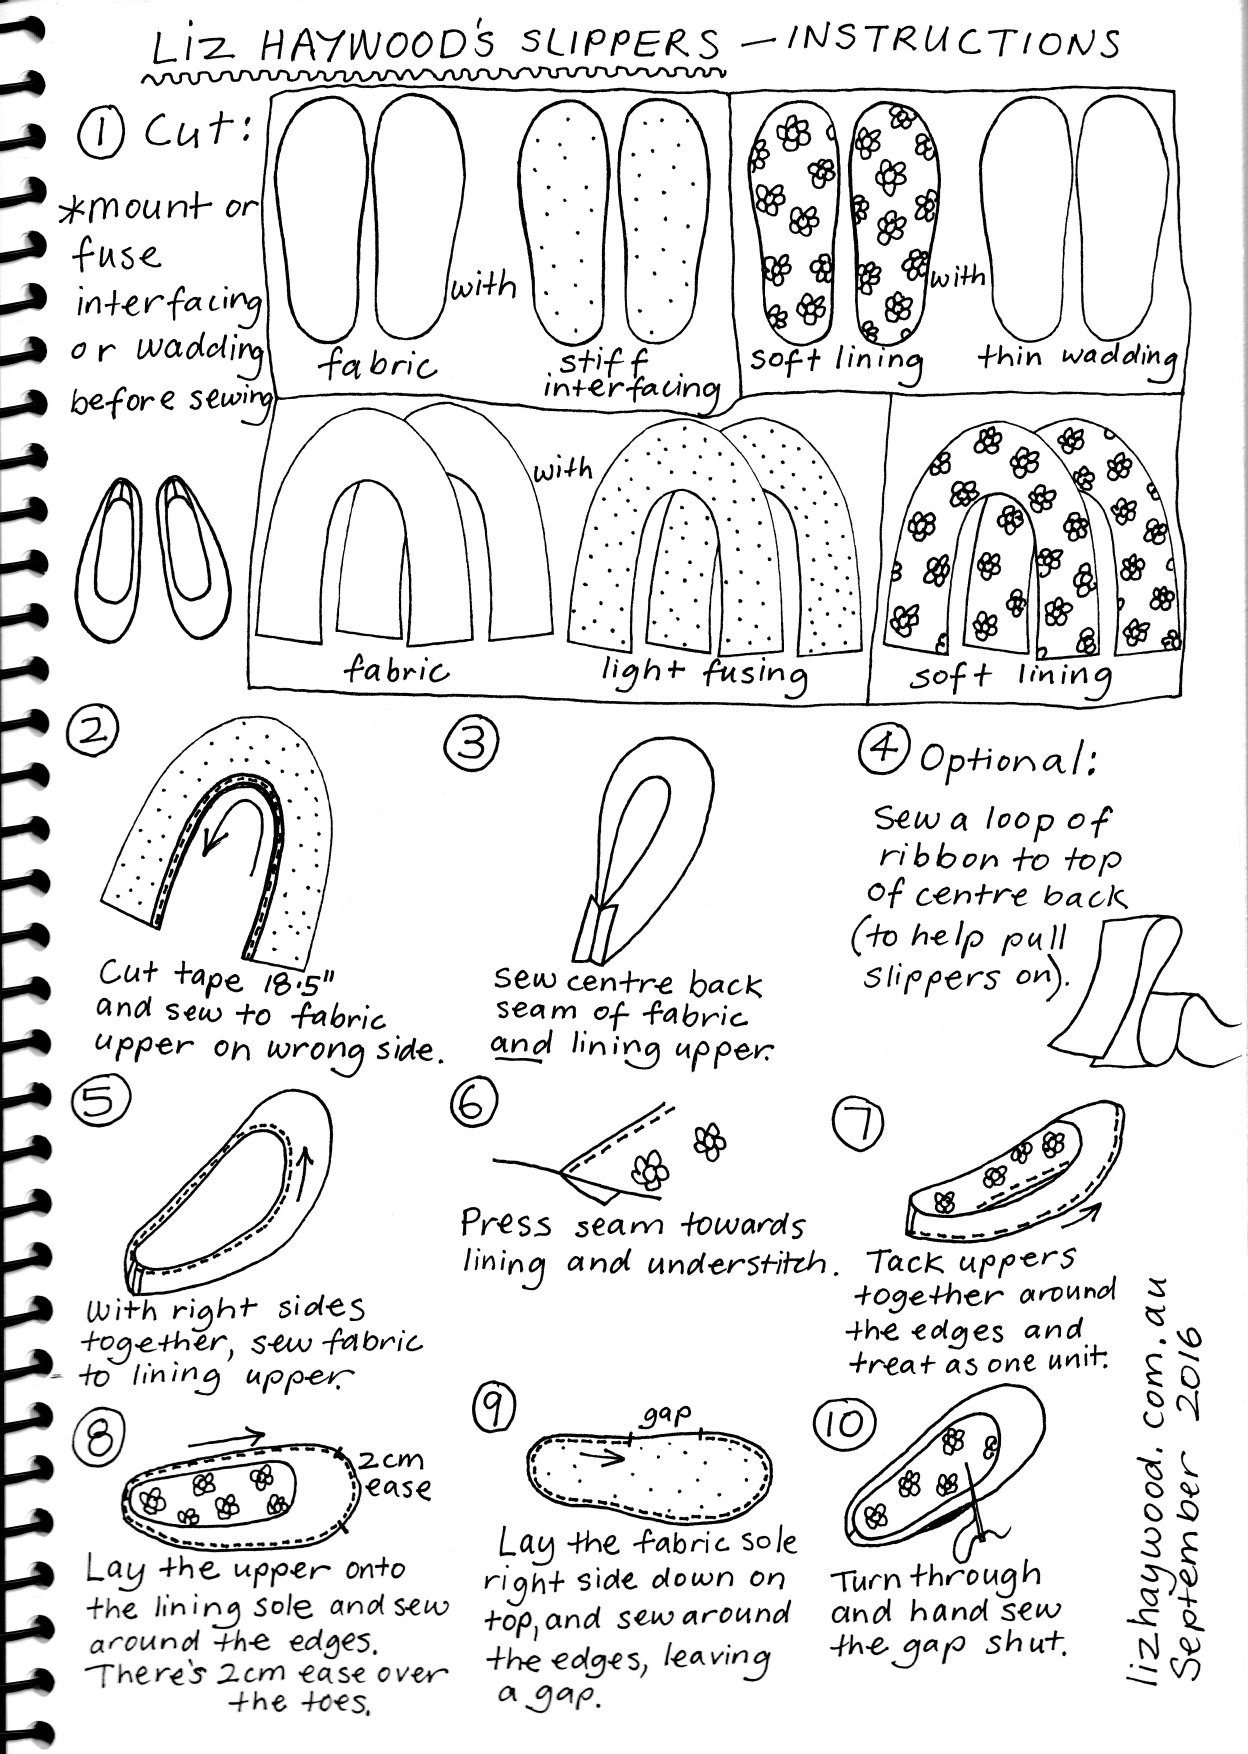 LIZ HAYWOOD'S SLIPPERS — INSTRUCTIONS
① Cut:
*mount or
fuse
interfacing
or wadding
before sewing
with
fabric
stiff
interfacing
with
soft lining
thin wadding
with
fabric
light fusing
soft lining
②
Cut tape 18.5"
and sew to fabric
upper on wrong side.
③
Sew centre back
seam of fabric
and lining upper.
④ Optional:
Sew a loop of
ribbon to top
of centre back
(to help pull
slippers on).
⑤
With right sides
together, sew fabric
to lining upper.
⑥
Press seam towards
lining and understitch.
⑦
Tack uppers
together around
the edges and
treat as one unit.
⑧
2cm
ease
Lay the upper onto
the lining sole and sew
around the edges.
There's 2cm ease over
the toes.
⑨
gap
Lay the fabric sole
right side down on
top, and sew around
the edges, leaving
a gap.
⑩
Turn through
and hand sew
the gap shut.
lizhaywood.com.au
September 2016